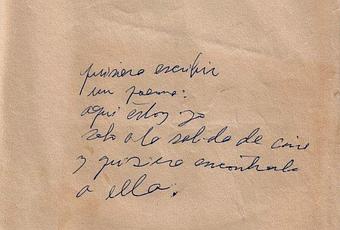 quisiera escribir
un poema:
aquí estoy yo
solo a la salida de cine
y quisiera encontrarla
a ella.